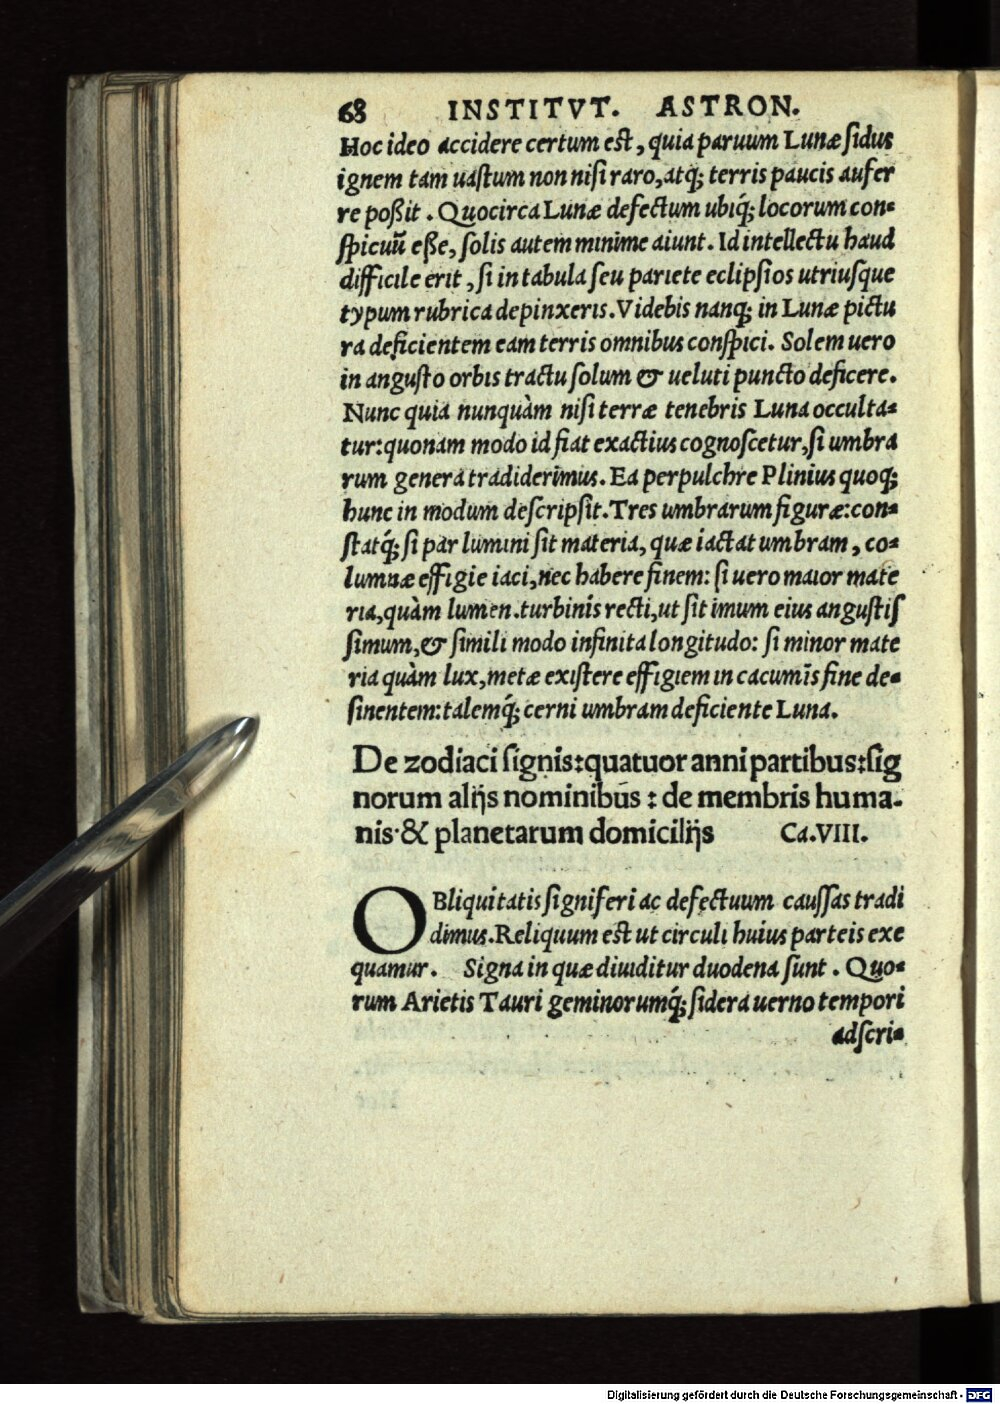 68 INSTITVT. ASTRON.
Hoc ideo accidere certum est, quia paruum Lunæ sidus
ignem tam uastum non nisi raro, atq; terris paucis aufer
re poßit. Quocirca Lunæ defectum ubiq́; locorum con-
spicuũ eße, solis autem minime aiunt. Id intellectu haud
difficile erit, si in tabula seu pariete eclipsios utriusque
typum rubrica depinxeris. Videbis nanq; in Lunæ pictu
ra deficientem eam terris omnibus conspici. Solem uero
in angusto orbis tractu solum & ueluti puncto deficere.
Nunc quia nunquàm nisi terræ tenebris Luna occulta-
tur: quonam modo id fiat exactius cognoscetur, si umbra
rum genera tradiderimus. Ea perpulchre Plinius quoq;
hunc in modum descripsit. Tres umbrarum figuræ: con-
statq́; si par lumini sit materia, quæ iactat umbram, co-
lumnæ effigie iaci, nec habere finem: si uero maior mate
ria, quàm lumen. turbinis recti, ut sit imum eius angustis
simum, & simili modo infinita longitudo: si minor mate
ria quàm lux, metæ existere effigiem in cacumĩs fine de-
sinentem: talemq́; cerni umbram deficiente Luna.
De zodiaci signis: quatuor anni partibus: sig
norum alijs nominibus : de membris huma-
nis· & planetarum domicilijs Ca. VIII.
OBliquitatis signiferi ac defectuum caussas tradi
dimus. Reliquum est ut circuli huius parteis exe
quamur. Signa in quæ diuiditur duodena sunt. Quo-
rum Arietis Tauri geminorumq́; sidera uerno tempori
adscri-
Digitalisierung gefördert durch die Deutsche Forschungsgemeinschaft - DFG